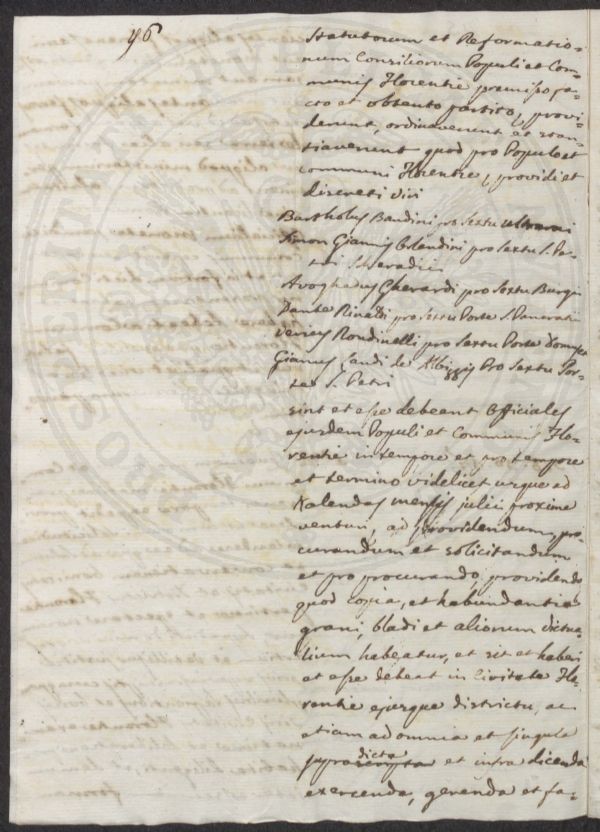 96
Statutorum et Reformatio-
num Consiliorum Populi et Com-
munis Florentie, premisso fa-
cto et obtento partito, provi-
derunt, ordinaverunt et stan-
tiaverunt quod pro Populo et
Communi Florentie, providi et
discreti viri
Bartholus Bandini pro Sextu Ultrarni
Simon Giannis Orlandini pro Sextu S. Pe-
tri Scheradii
Avoghadus Gherardi pro Sextu Burgi
Dante Rinaldi pro Sextu Porte S. Pancratii
Verius Rondinelli pro Sextu Porte Domus
Gianus Landi de Albizzis pro Sextu Por-
tae S. Petri
sint et esse debeant Officiales
ejusdem Populi et Communis Flo-
rentie in tempore et pro tempore
et termino videlicet usque ad
Kalendas mensis julii proxime
venturi, ad providendum, pro-
curandum et solicitandum
et pro procurando, providendo
quod copia, et habundantia
grani, bladi et aliorum victua-
lium habeatur, et sit et haberi
et esse debeat in Civitate Flo-
rentie ejusque districtu, ac
etiam ad omnia et singula
suprascripta dicta et infra dicenda
exercenda, gerenda et fa-